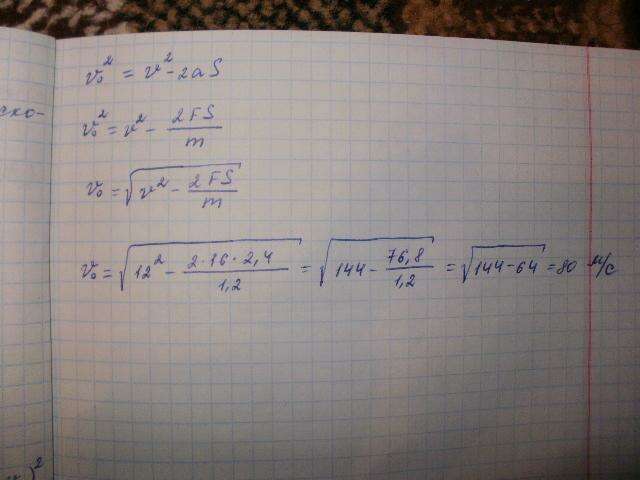 v₀² = v² - 2aS
ско-
v₀² = v² - 2FS/m
v₀ = √(v² - 2FS/m)
v₀ = √(12² - 2·16·2,4/1,2) = √(144 - 76,8/1,2) = √(144-64) = 80 м/с
)²